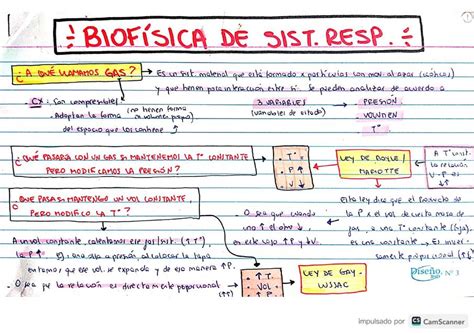 BIOFÍSICA DE SIST. RESP.
¿A QUÉ LLAMAMOS GAS?
Es un sist. material que está formado x partículas con mov. al azar (caóticas)
y que tienen poca interacción entre sí. Se pueden analizar de acuerdo a
CX: Son compresibles
3 VARIABLES
(variables de estado)
PRESIÓN
VOLUMEN
T°
Adoptan la forma (no tienen forma ni volumen propio)
del espacio que los contiene
¿QUÉ PASARÍA CON UN GAS SI MANTENEMOS LA T° CONSTANTE
PERO MODIFICAMOS LA PRESIÓN?
T°
P
V
LEY DE BOYLE/
MARIOTTE
A T° const.
la relación
V-P es
QUE PASA SI MANTENGO UN VOL CONSTANTE,
PERO MODIFICO LA T°?
O sea que cuando
uno ↑ el otro ↓
en este caso ↑ P y ↓ V.
Esta ley dice que el producto de
la P x el vol de cierta masa de
gas, a una T° constante (fija),
es una constante → Es inver-
samente proporcional
A un vol. constante, calentamos ese gas/sist. (↑ T°)
la P ↑.
a presión, al colocar la tapa
evitamos que ese vol. se expanda y de esa manera ↑ P.
O sea que la relación es directamente proporcional
↑ T.
VOL
↑ P
LEY DE GAY-
LUSSAC
Diseño N° 1
Impulsado por CS CamScanner